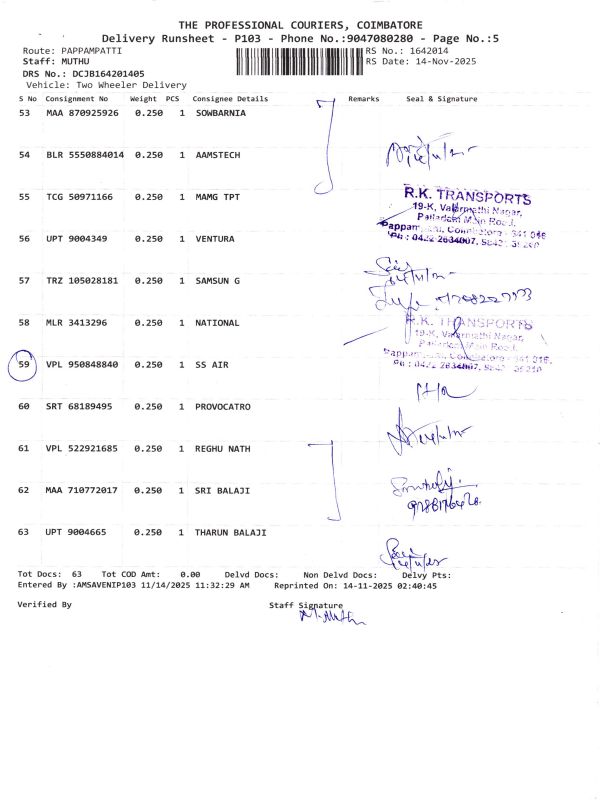 THE PROFESSIONAL COURIERS, COIMBATORE
Delivery Runsheet - P103 - Phone No.:9047080280 - Page No.:5
Route: PAPPAMPATTI RS No.: 1642014
Staff: MUTHU RS Date: 14-Nov-2025
DRS No.: DCJB164201405
Vehicle: Two Wheeler Delivery
S No Consignment No Weight PCS Consignee Details Remarks Seal & Signature
53 MAA 870925926 0.250 1 SOWBARNIA
54 BLR 5550884014 0.250 1 AAMSTECH
55 TCG 50971166 0.250 1 MAMG TPT
R.K. TRANSPORTS
19-K, Valarmathi Nagar,
Palladam Main Road,
56 UPT 9004349 0.250 1 VENTURA
57 TRZ 105028181 0.250 1 SAMSUN G
58 MLR 3413296 0.250 1 NATIONAL
R.K. TRANSPORTS
19-K, Valarmathi Nagar,
Palladam Main Road,
59 VPL 950848840 0.250 1 SS AIR
60 SRT 68189495 0.250 1 PROVOCATRO
61 VPL 522921685 0.250 1 REGHU NATH
62 MAA 710772017 0.250 1 SRI BALAJI
63 UPT 9004665 0.250 1 THARUN BALAJI
Tot Docs: 63 Tot COD Amt: 0.00 Delvd Docs: Non Delvd Docs: Delvy Pts:
Entered By :AMSAVENIP103 11/14/2025 11:32:29 AM Reprinted On: 14-11-2025 02:40:45
Verified By Staff Signature